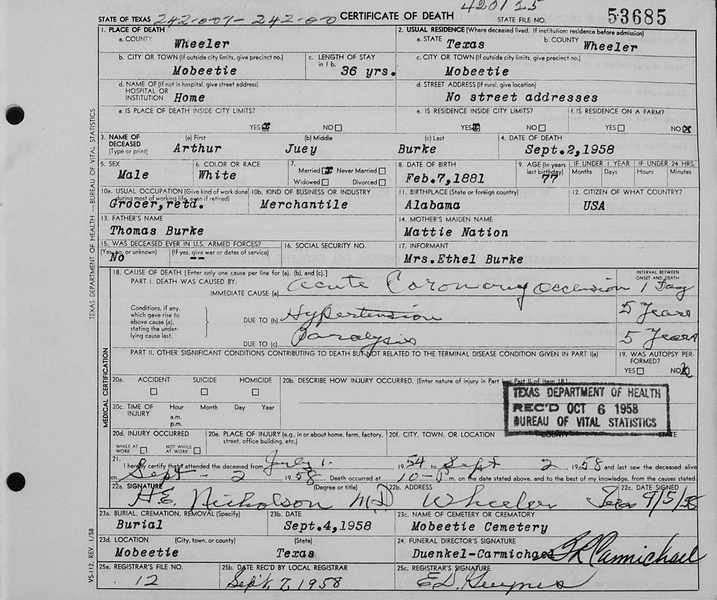 420125
STATE OF TEXAS 242-007-242-00 CERTIFICATE OF DEATH STATE FILE NO. 53685
1. PLACE OF DEATH 2. USUAL RESIDENCE (Where deceased lived. If institution: residence before admission)
a. COUNTY Wheeler a. STATE Texas b. COUNTY Wheeler
b. CITY OR TOWN (If outside city limits, give precinct no.) Mobeetie c. LENGTH OF STAY in 1 b. 36 yrs. c. CITY OR TOWN (If outside city limits, give precinct no.) Mobeetie
d. NAME OF (If not in hospital, give street address) HOSPITAL OR INSTITUTION Home d. STREET ADDRESS (If rural, give location) No street addresses
e. IS PLACE OF DEATH INSIDE CITY LIMITS? YES NO e. IS RESIDENCE INSIDE CITY LIMITS? YES NO f. IS RESIDENCE ON A FARM? YES NO
3. NAME OF DECEASED (Type or print) (a) First Arthur (b) Middle Juey (c) Last Burke 4. DATE OF DEATH Sept.2,1958
5. SEX Male 6. COLOR OR RACE White 7. Married Never Married Widowed Divorced 8. DATE OF BIRTH Feb.7,1881 9. AGE (In years last birthday) 77 IF UNDER 1 YEAR Months Days IF UNDER 24 HRS. Hours Min.
10a. USUAL OCCUPATION (Give kind of work done during most of working life, even if retired) Grocer,retd. 10b. KIND OF BUSINESS OR INDUSTRY Merchantile 11. BIRTHPLACE (State or foreign country) Alabama 12. CITIZEN OF WHAT COUNTRY? USA
13. FATHER'S NAME Thomas Burke 14. MOTHER'S MAIDEN NAME Mattie Nation
15. WAS DECEASED EVER IN U.S. ARMED FORCES? (Yes, no, or unknown) No (If yes, give war or dates of service) -- 16. SOCIAL SECURITY NO. 17. INFORMANT Mrs.Ethel Burke
18. CAUSE OF DEATH [Enter only one cause per line for (a), (b), and (c).] INTERVAL BETWEEN ONSET AND DEATH
PART I. DEATH WAS CAUSED BY:
IMMEDIATE CAUSE (a) Acute Coronary Occlusion 1 Day
Conditions, if any, which gave rise to above cause (a), stating the underlying cause last.
DUE TO (b) Hypertension 5 Years
DUE TO (c) Paralysis 5 Years
PART II. OTHER SIGNIFICANT CONDITIONS CONTRIBUTING TO DEATH BUT NOT RELATED TO THE TERMINAL DISEASE CONDITION GIVEN IN PART I(a) 19. WAS AUTOPSY PERFORMED? YES NO
20a. ACCIDENT SUICIDE HOMICIDE 20b. DESCRIBE HOW INJURY OCCURRED. (Enter nature of injury in Part I or Part II of item 18.)
20c. TIME OF INJURY Hour a.m. p.m. Month Day Year
TEXAS DEPARTMENT OF HEALTH
REC'D OCT 6 1958
BUREAU OF VITAL STATISTICS
20d. INJURY OCCURRED WHILE AT WORK NOT WHILE AT WORK 20e. PLACE OF INJURY (e.g., in or about home, farm, factory, street, office building, etc.) 20f. CITY, TOWN, OR LOCATION COUNTY STATE
21. I hereby certify that I attended the deceased from July 1. 1954 to Sept 2 1958 and last saw the deceased alive
on Sept - 2 1958. Death occurred at 10-P m. on the date stated above, and to the best of my knowledge, from the causes stated.
22a. SIGNATURE (Degree or title) H.E. Nicholson MD 22b. ADDRESS Wheeler Texas 22c. DATE SIGNED 9/5/58
23a. BURIAL, CREMATION, REMOVAL (Specify) Burial 23b. DATE Sept.4,1958 23c. NAME OF CEMETERY OR CREMATORY Mobeetie Cemetery
23d. LOCATION (City, town, or county) Mobeetie (State) Texas 24. FUNERAL DIRECTOR'S SIGNATURE Duenkel-Carmichael Carmichael
25a. REGISTRAR'S FILE NO. 12 25b. DATE REC'D BY LOCAL REGISTRAR Sept. 7, 1958 25c. REGISTRAR'S SIGNATURE
TEXAS DEPARTMENT OF HEALTH—BUREAU OF VITAL STATISTICS
MEDICAL CERTIFICATION
VS-112, REV. 1/58